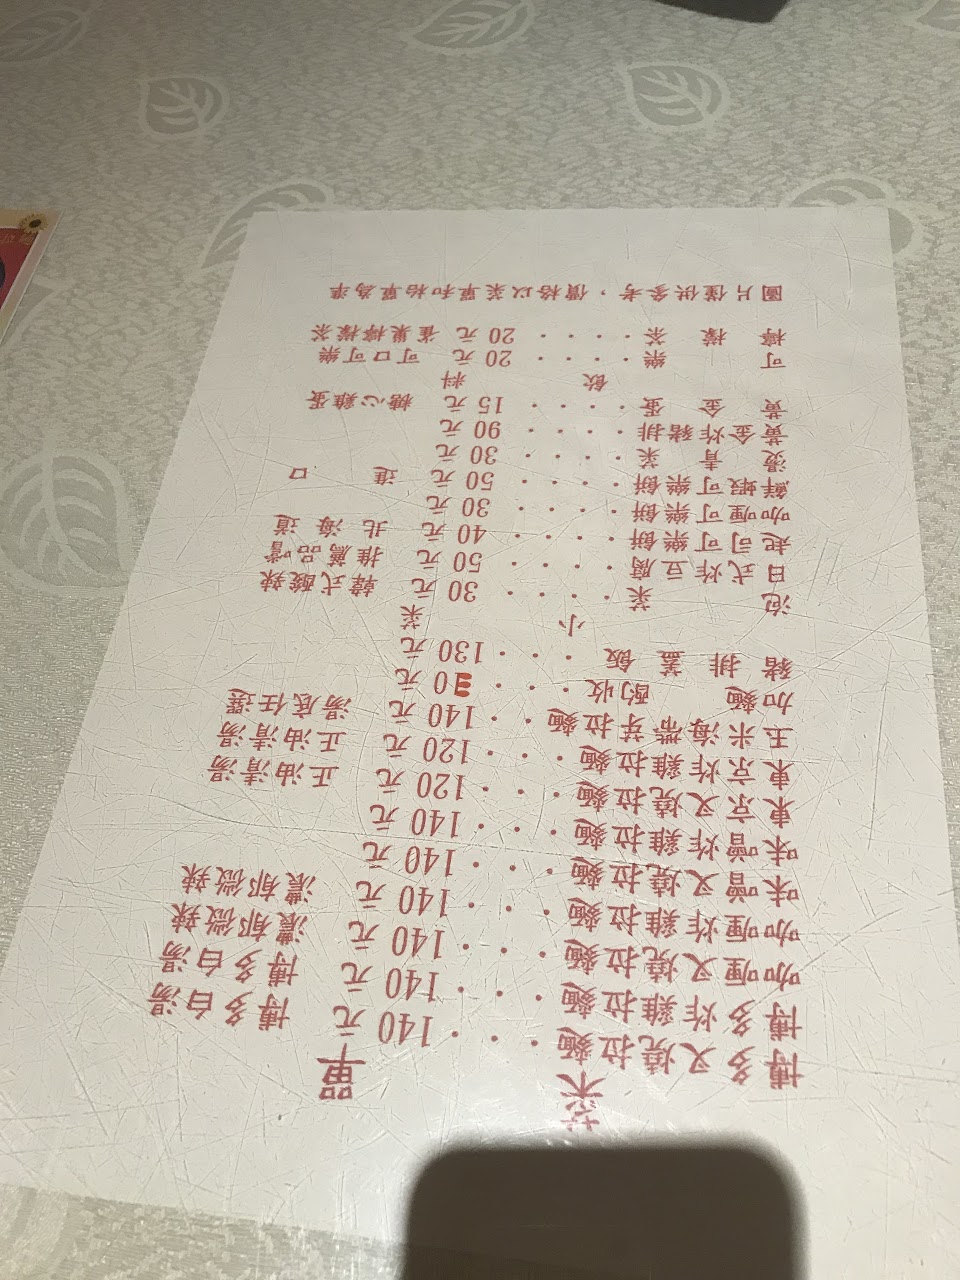 菜單
博多叉燒拉麵...140元 博多白湯
博多炸雞拉麵...140元 博多白湯
咖喱叉燒拉麵...140元 濃郁微辣
咖喱炸雞拉麵...140元 濃郁微辣
味噌叉燒拉麵...140元
味噌炸雞拉麵...140元
東京叉燒拉麵...120元 正油清湯
東京炸雞拉麵...120元 正油清湯
玉米海帶芽拉麵..140元 湯底任選
加麵 酌收...30元
豬排蓋飯...130元
小菜
泡菜....30元 韓式酸辣
日式炸豆腐....50元 推薦品嚐
起司可樂餅....40元 北海道
咖喱可樂餅....30元
鮮蝦可樂餅....50元 進口
燙青菜....30元
黃金炸豬排....90元
黃金蛋....15元 糖心雞蛋
飲料
可樂....20元 可口可樂
檸檬茶....20元 雀巢檸檬茶
圖片僅供參考，價格以菜單和枱單為準